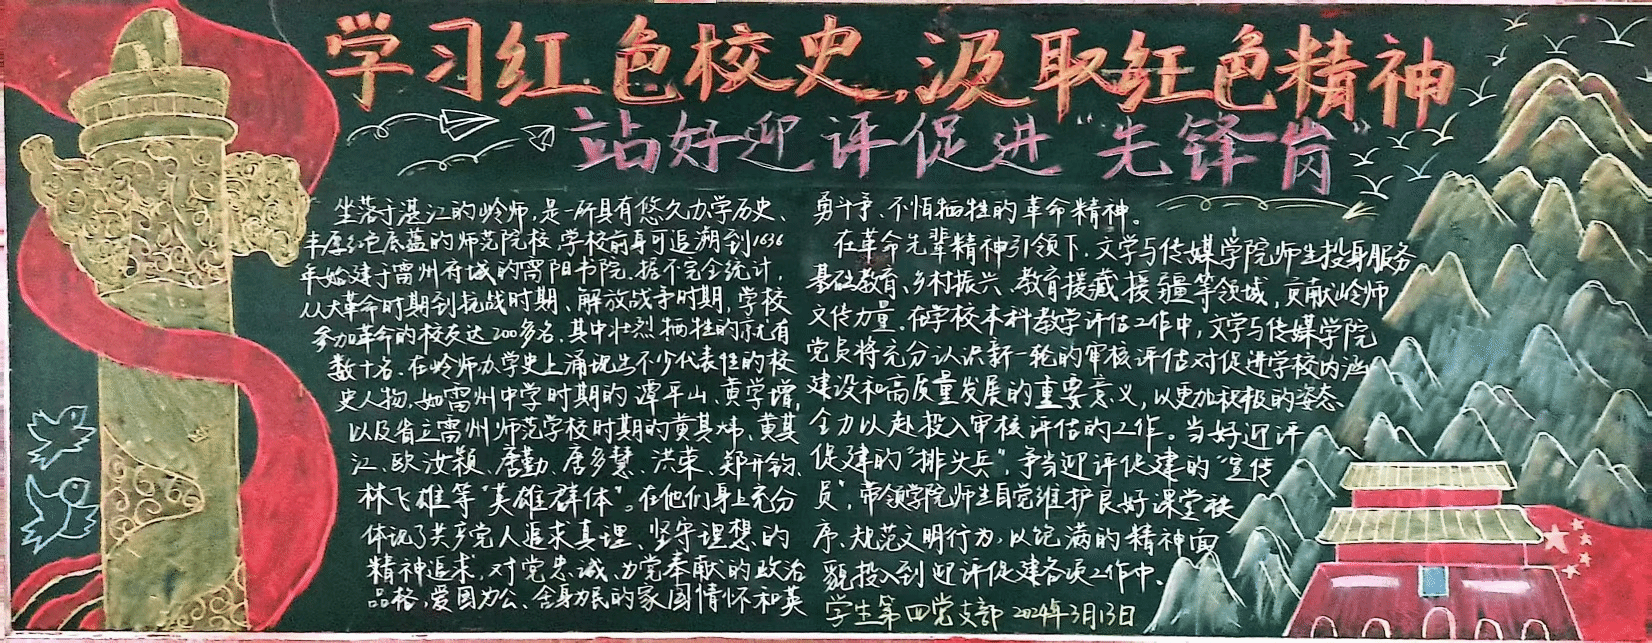 学习红色校史，汲取红色精神
站好迎评促进“先锋岗”
坐落于湛江的岭师，是一所具有悠久办学历史、
丰厚红色底蕴的师范院校，学校前身可追溯到1636
年始建于雷州府城的雷阳书院。据不完全统计，
从大革命时期到抗战时期、解放战争时期，学校
参加革命的校友达200多名，其中壮烈牺牲的就有
数十名。在岭师办学史上涌现出不少代表性的校
史人物，如雷州中学时期的谭平山、黄学增，
以及省立雷州师范学校时期的黄其炜、黄其
江、欧汝颖、唐勤、唐多慧、洪荣、郑开钧、
林飞雄等“英雄群体”。在他们身上充分
体现了共产党人追求真理、坚守理想的
精神追求，对党忠诚、为党奉献的政治
品格，爱国为公、舍身为民的家国情怀和英
勇斗争、不怕牺牲的革命精神。
在革命先辈精神引领下，文学与传媒学院师生投身服务
基础教育、乡村振兴、教育援藏援疆等领域，贡献岭师
文传力量。在学校本科教学评估工作中，文学与传媒学院
党员将充分认识新一轮的审核评估对促进学校内涵
建设和高质量发展的重要意义，以更加积极的姿态
全力以赴投入审核评估的工作。当好迎评
促建的“排头兵”，争当迎评促建的“宣传
员”，带领学院师生自觉维护良好课堂秩
序、规范文明行为，以饱满的精神面
貌投入到迎评促建各项工作中。
学生第四党支部 2024年3月13日